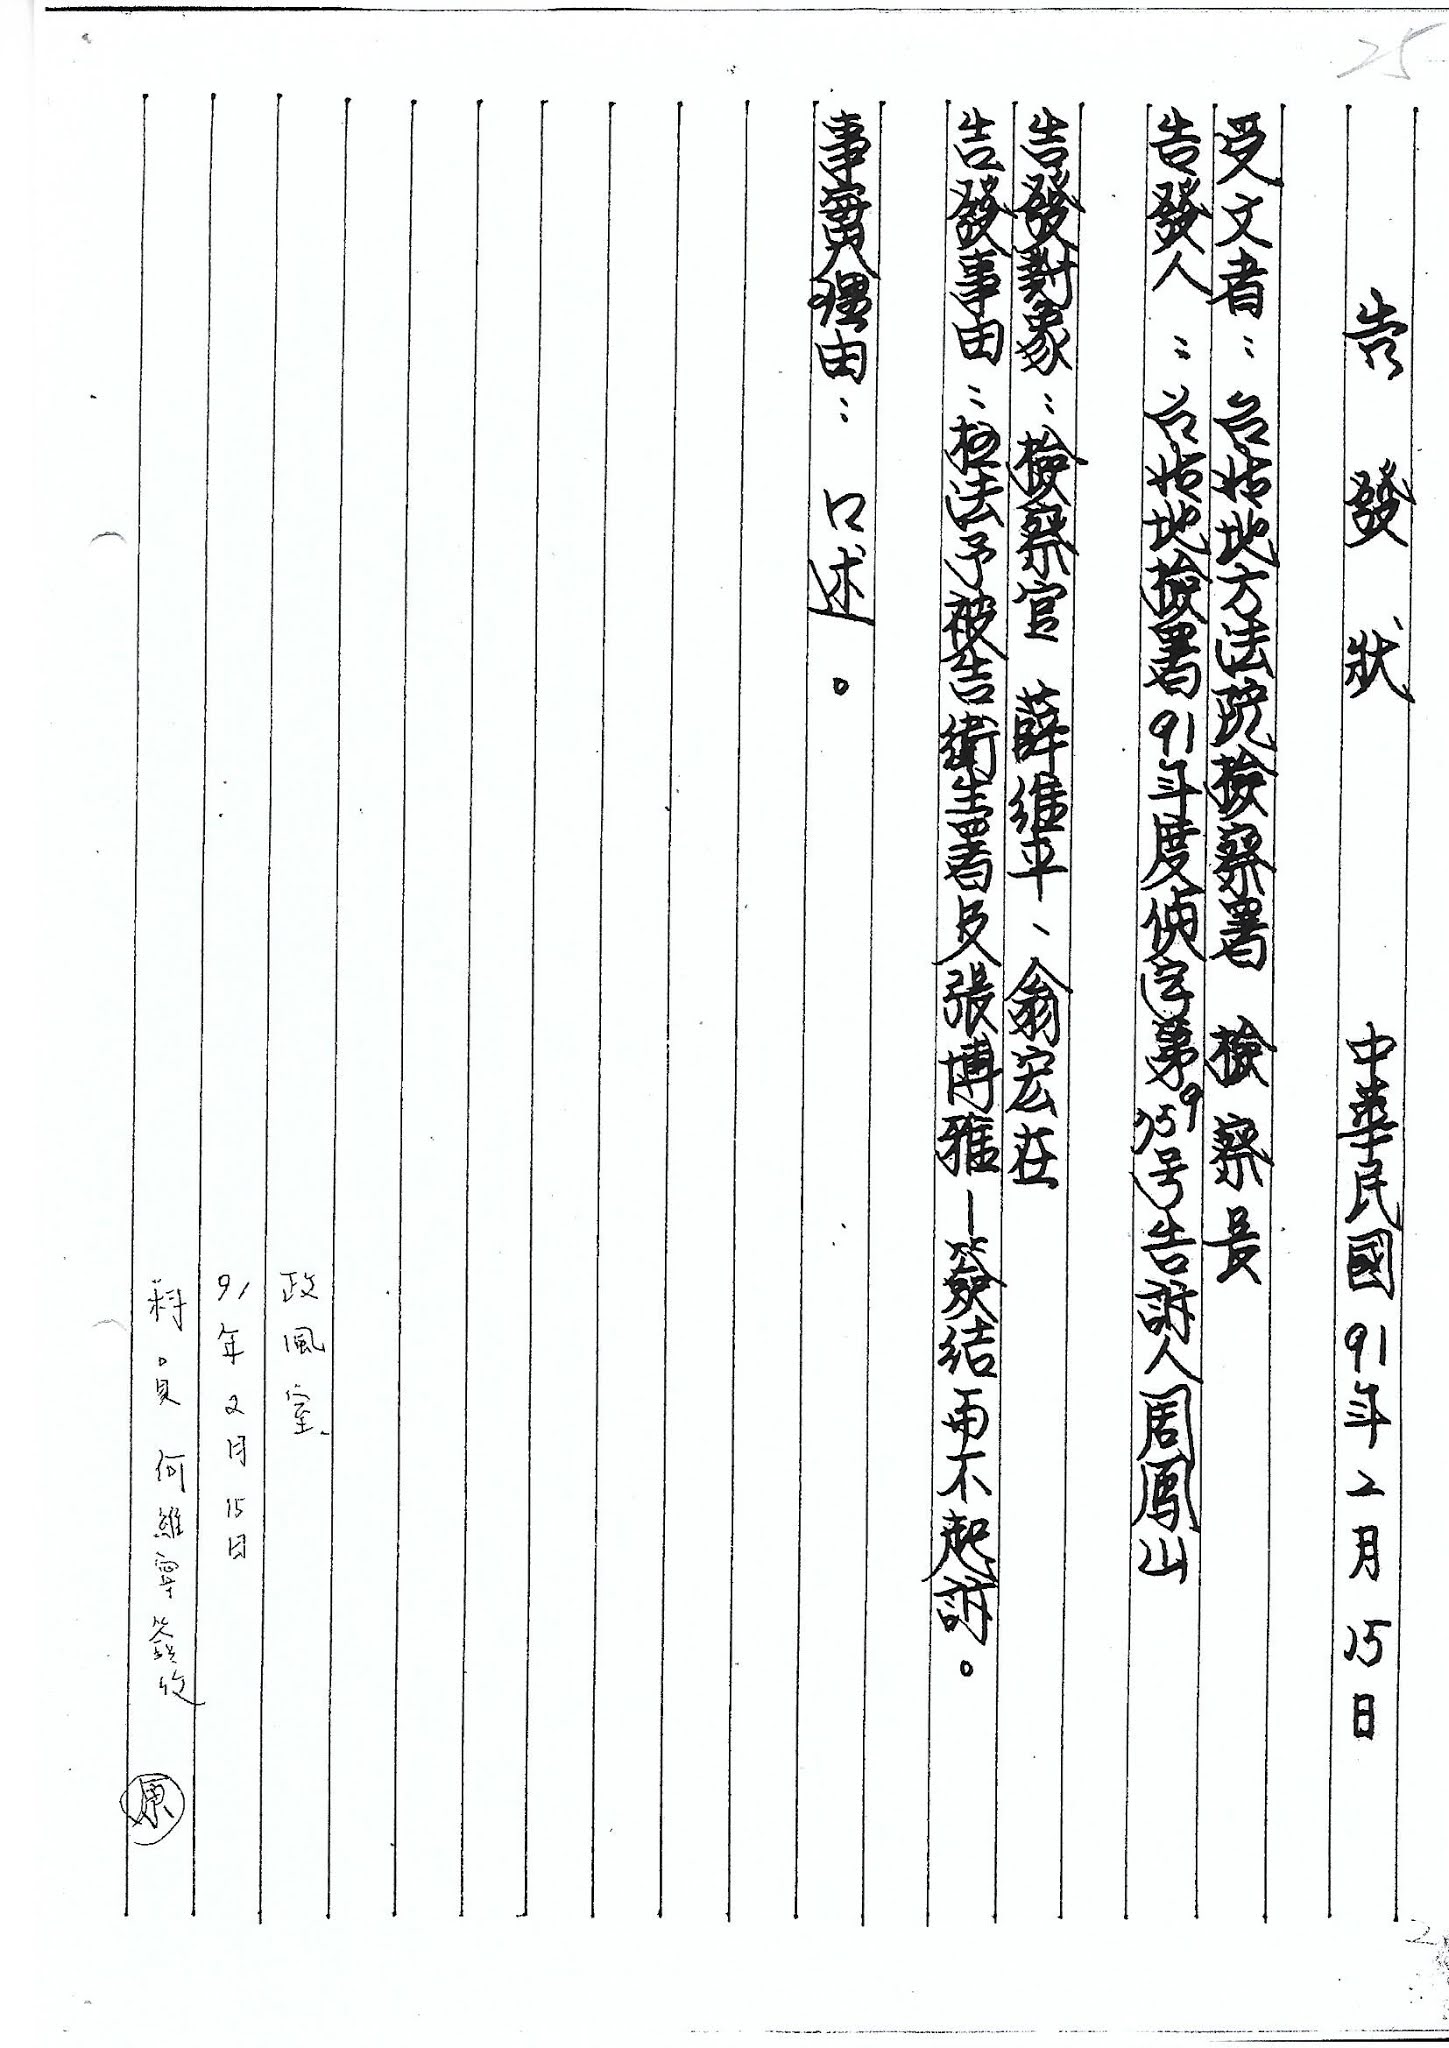 25
告發狀 中華民國91年2月15日
受文者：台北地方法院檢察署 檢察長
告發人：台北地檢署91年度偵字第959号告訴人周鳳山
告發對象：檢察官 薛維平、翁宏在
告發事由：枉法予被告衛生署及張博雅—簽結而不起訴。
事實理由：口述。
政風室
91年2月15日
科員 何維 簽收
原